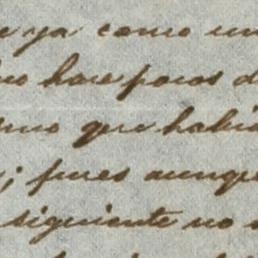 ya como un
hace pocos d
que habia
; pues aunque
siguiente no